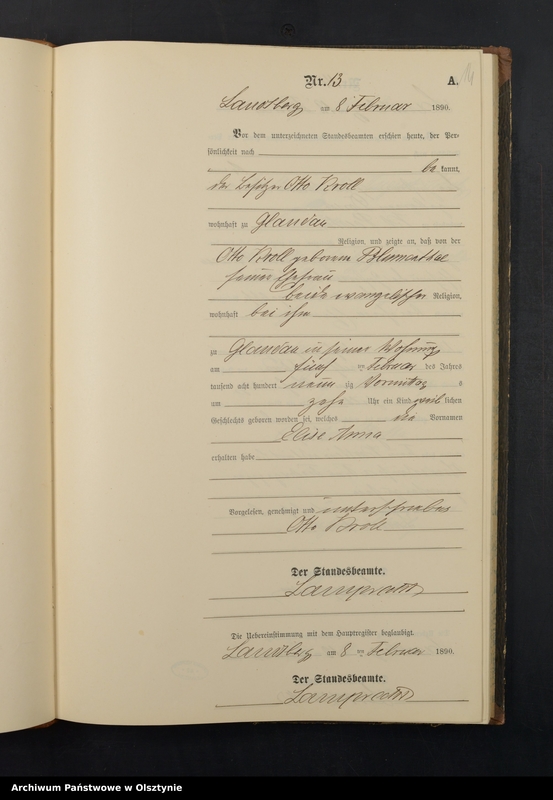 14
Nr. 13 A.
Landsberg am 8 Februar 1890.
Vor dem unterzeichneten Standesbeamten erschien heute, der Per-
sönlichkeit nach
be kannt,
der Besitzer Otto Kroll
wohnhaft zu Glandau
Religion, und zeigte an, daß von der
Otto Kroll geborene Blumenthal
seiner Ehefrau
beide evangelischer Religion,
wohnhaft bei ihm
zu Glandau in seiner Wohnung
am fünf ten Februar des Jahres
tausend acht hundert neun zig Vormittag s
um zehn Uhr ein Kind weib lichen
Geschlechts geboren worden sei, welches die Vornamen
Elise Anna
erhalten habe
Vorgelesen, genehmigt und unterschrieben
Otto Kroll
Der Standesbeamte.
Lamprecht
Die Uebereinstimmung mit dem Hauptregister beglaubigt.
Landsberg am 8 ten Februar 1890.
Der Standesbeamte.
Lamprecht
Archiwum Państwowe w Olsztynie